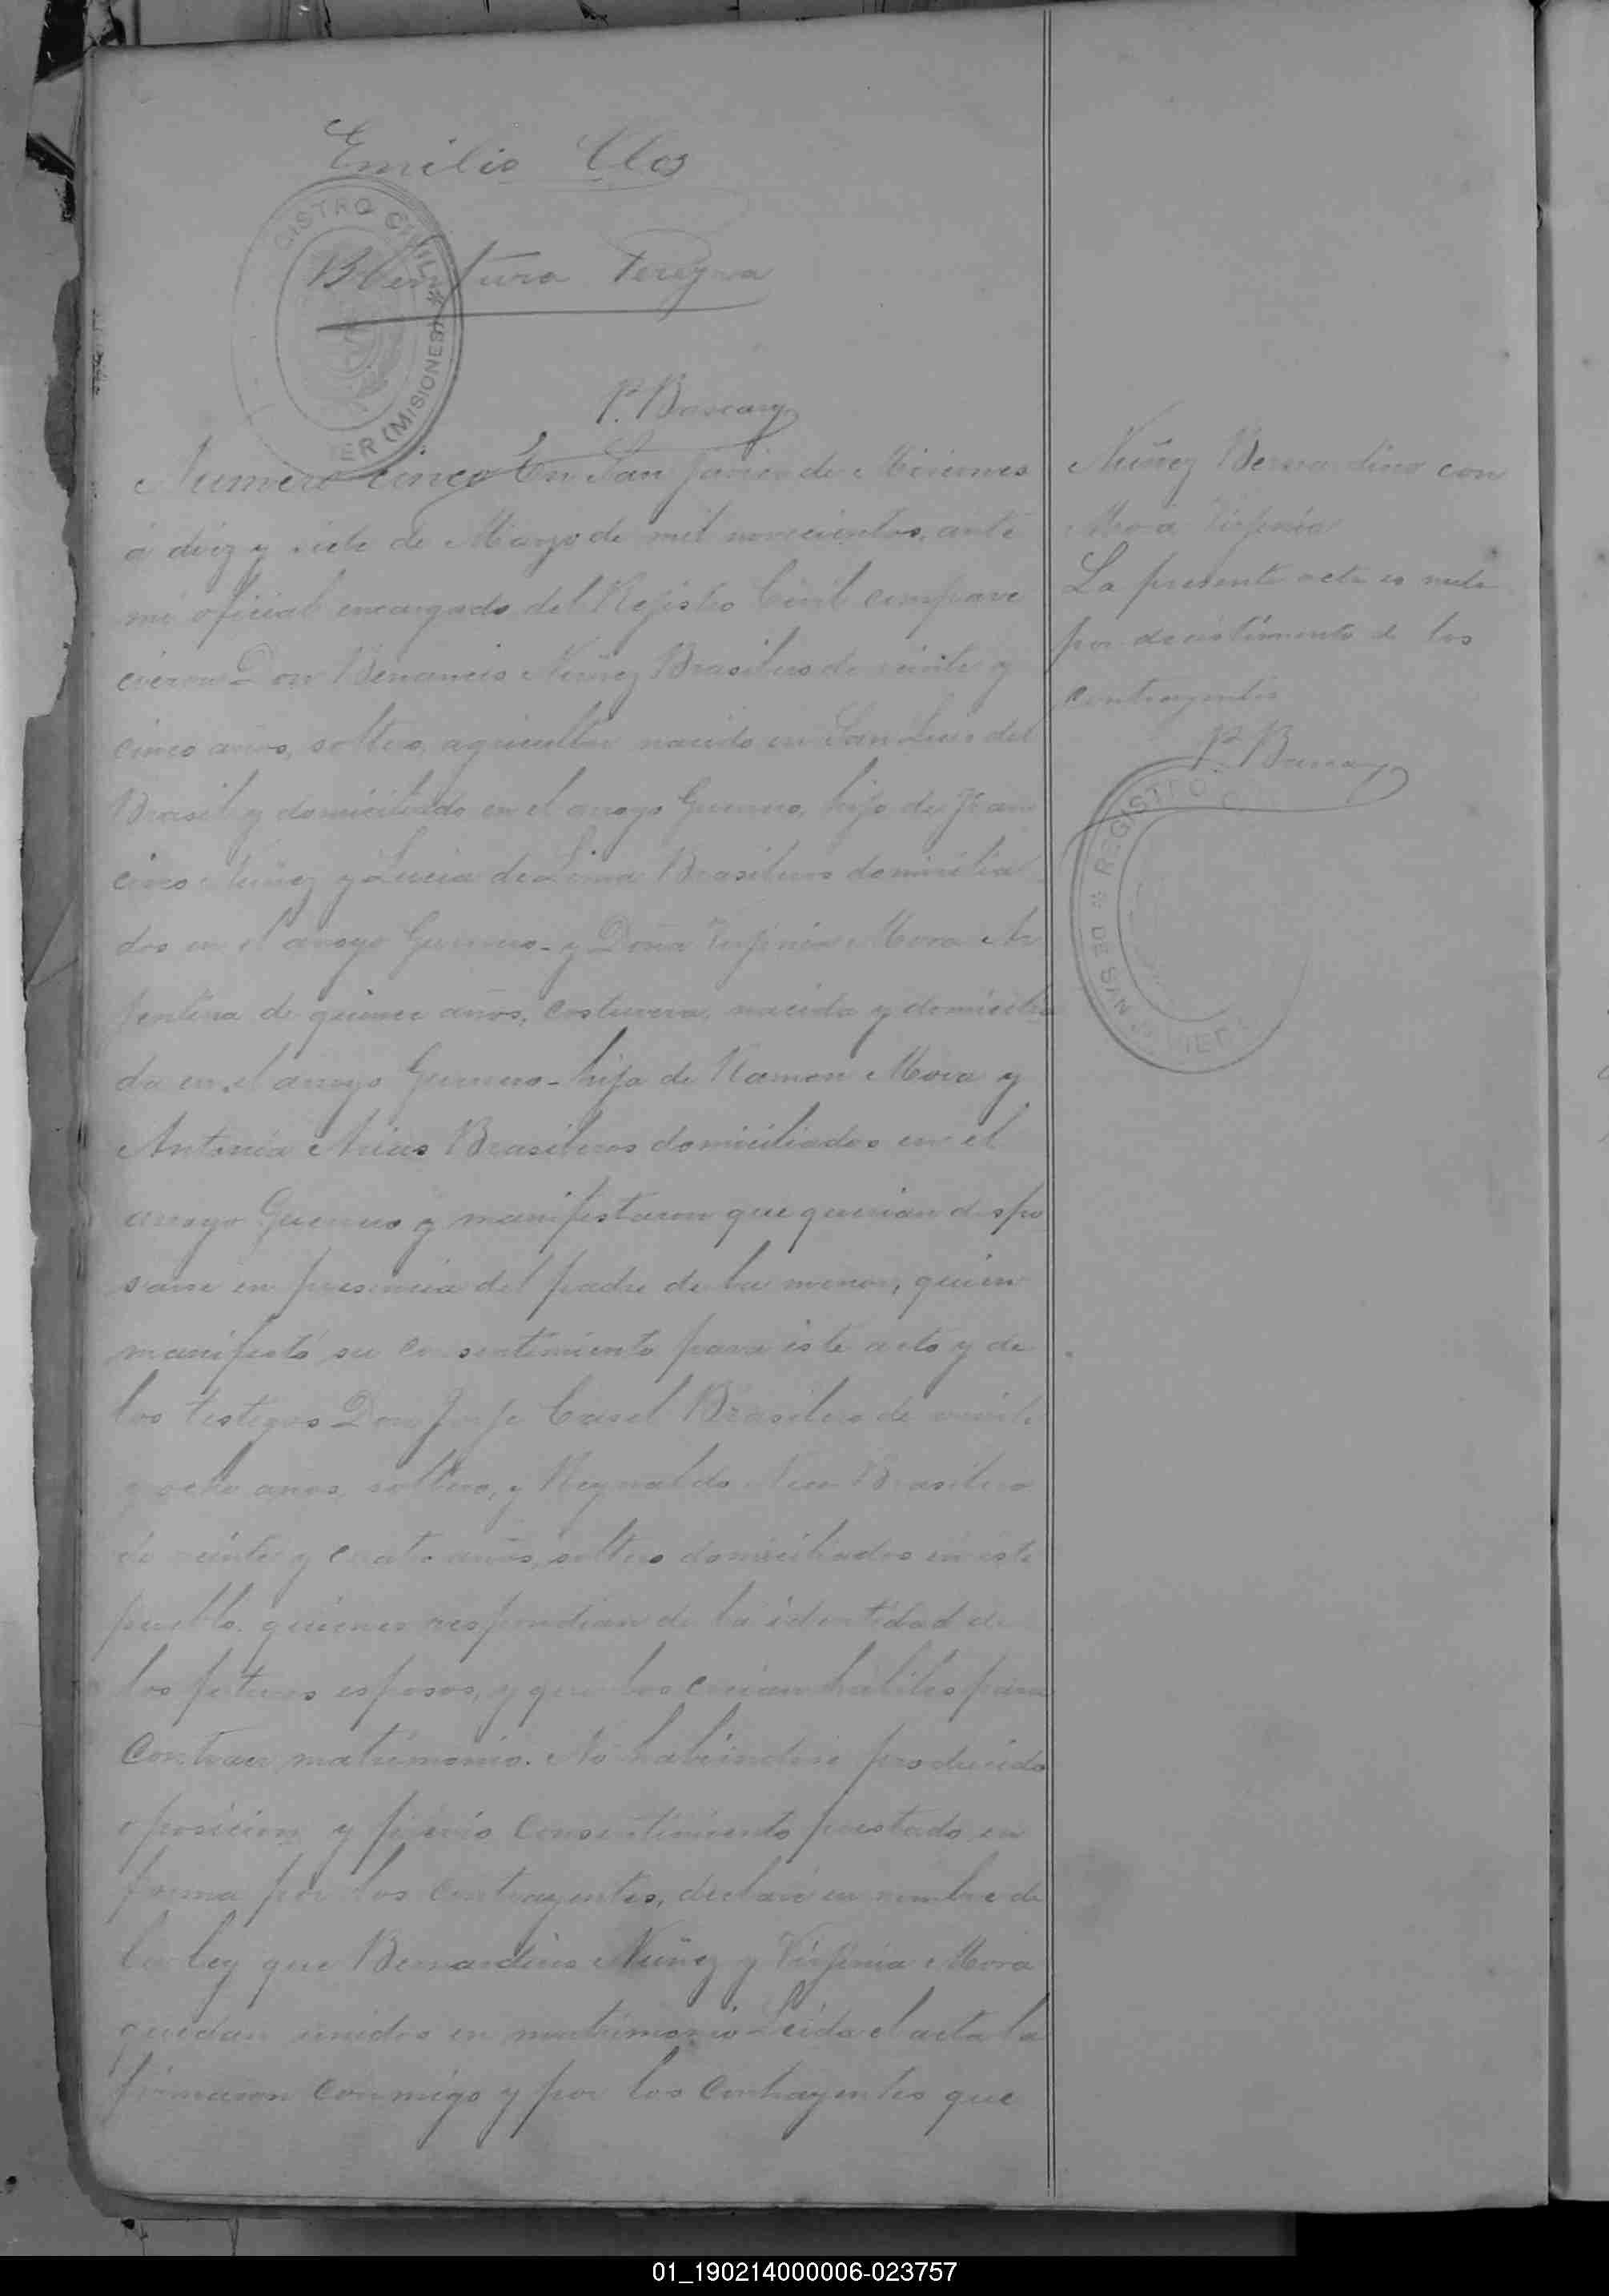 Emilio Clos
GISTRO CIVIL * 
IER (MISIONES)
Bbentura Pereyra
P. Bascary
Numero cinco En San Javier de Misiones
á diez y siete de Marzo de mil novecientos, ante
mi oficial encargado del Rejistro Civil compare
cieron Don Benancio Núñez Brasilero de veinte y
cinco años, soltero, agricultor nacido en San Luis del
Brasil y domiciliado en el arroyo Guerrero, hijo de Fran
cisco Núñez y Lucia de Lima Brasileros domicilia
dos en el arroyo Guerrero - y Doña Virjinia Mora Ar
jentina de quince años, costurera, nacida y domicilia
da en el arroyo Guerrero - hija de Ramon Mora y
Antonia Arias Brasileros domiciliados en el
arroyo Guerrero y manifestaron que querian despo
sarse en presencia del padre de la menor, quien
manifestó su consentimiento para este acto y de
los testigos Don Jorje Casel Brasilero de veinte
y ocho años, soltero, y Reynaldo Brasilero
de veinte y cuatro años, soltero domiciliados en este
pueblo, quienes respondian de la identidad de
los futuros esposos, y que los creian habiles para
contraer matrimonio. No habiendose producido
oposicion y previo consentimiento prestado en
forma por los contrayentes, declaré en nombre de
la ley que Bernardino Núñez y Virjinia Mora
quedan unidos en matrimonio - Leida el acta la
firmaron conmigo y por los contrayentes que
Núñez Bernardino con
Mora Virjinia
La presente acta es nula
por desistimiento de los
contrayentes
P. Bascary
* REGISTRO C
N/S DE
01_190214000006-023757